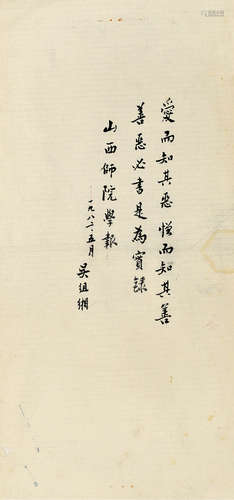 愛而知其惡憎而知其善
善惡必書是為實録
山西師院學報
一九八二、五月
吳組緗